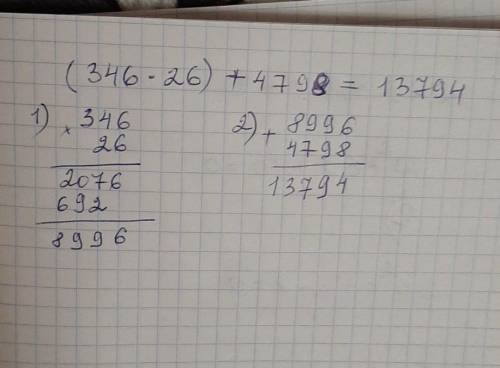 (346 · 26) + 4798 = 13794
1) × 346
26
2076
692
8996
2) + 8996
4798
13794